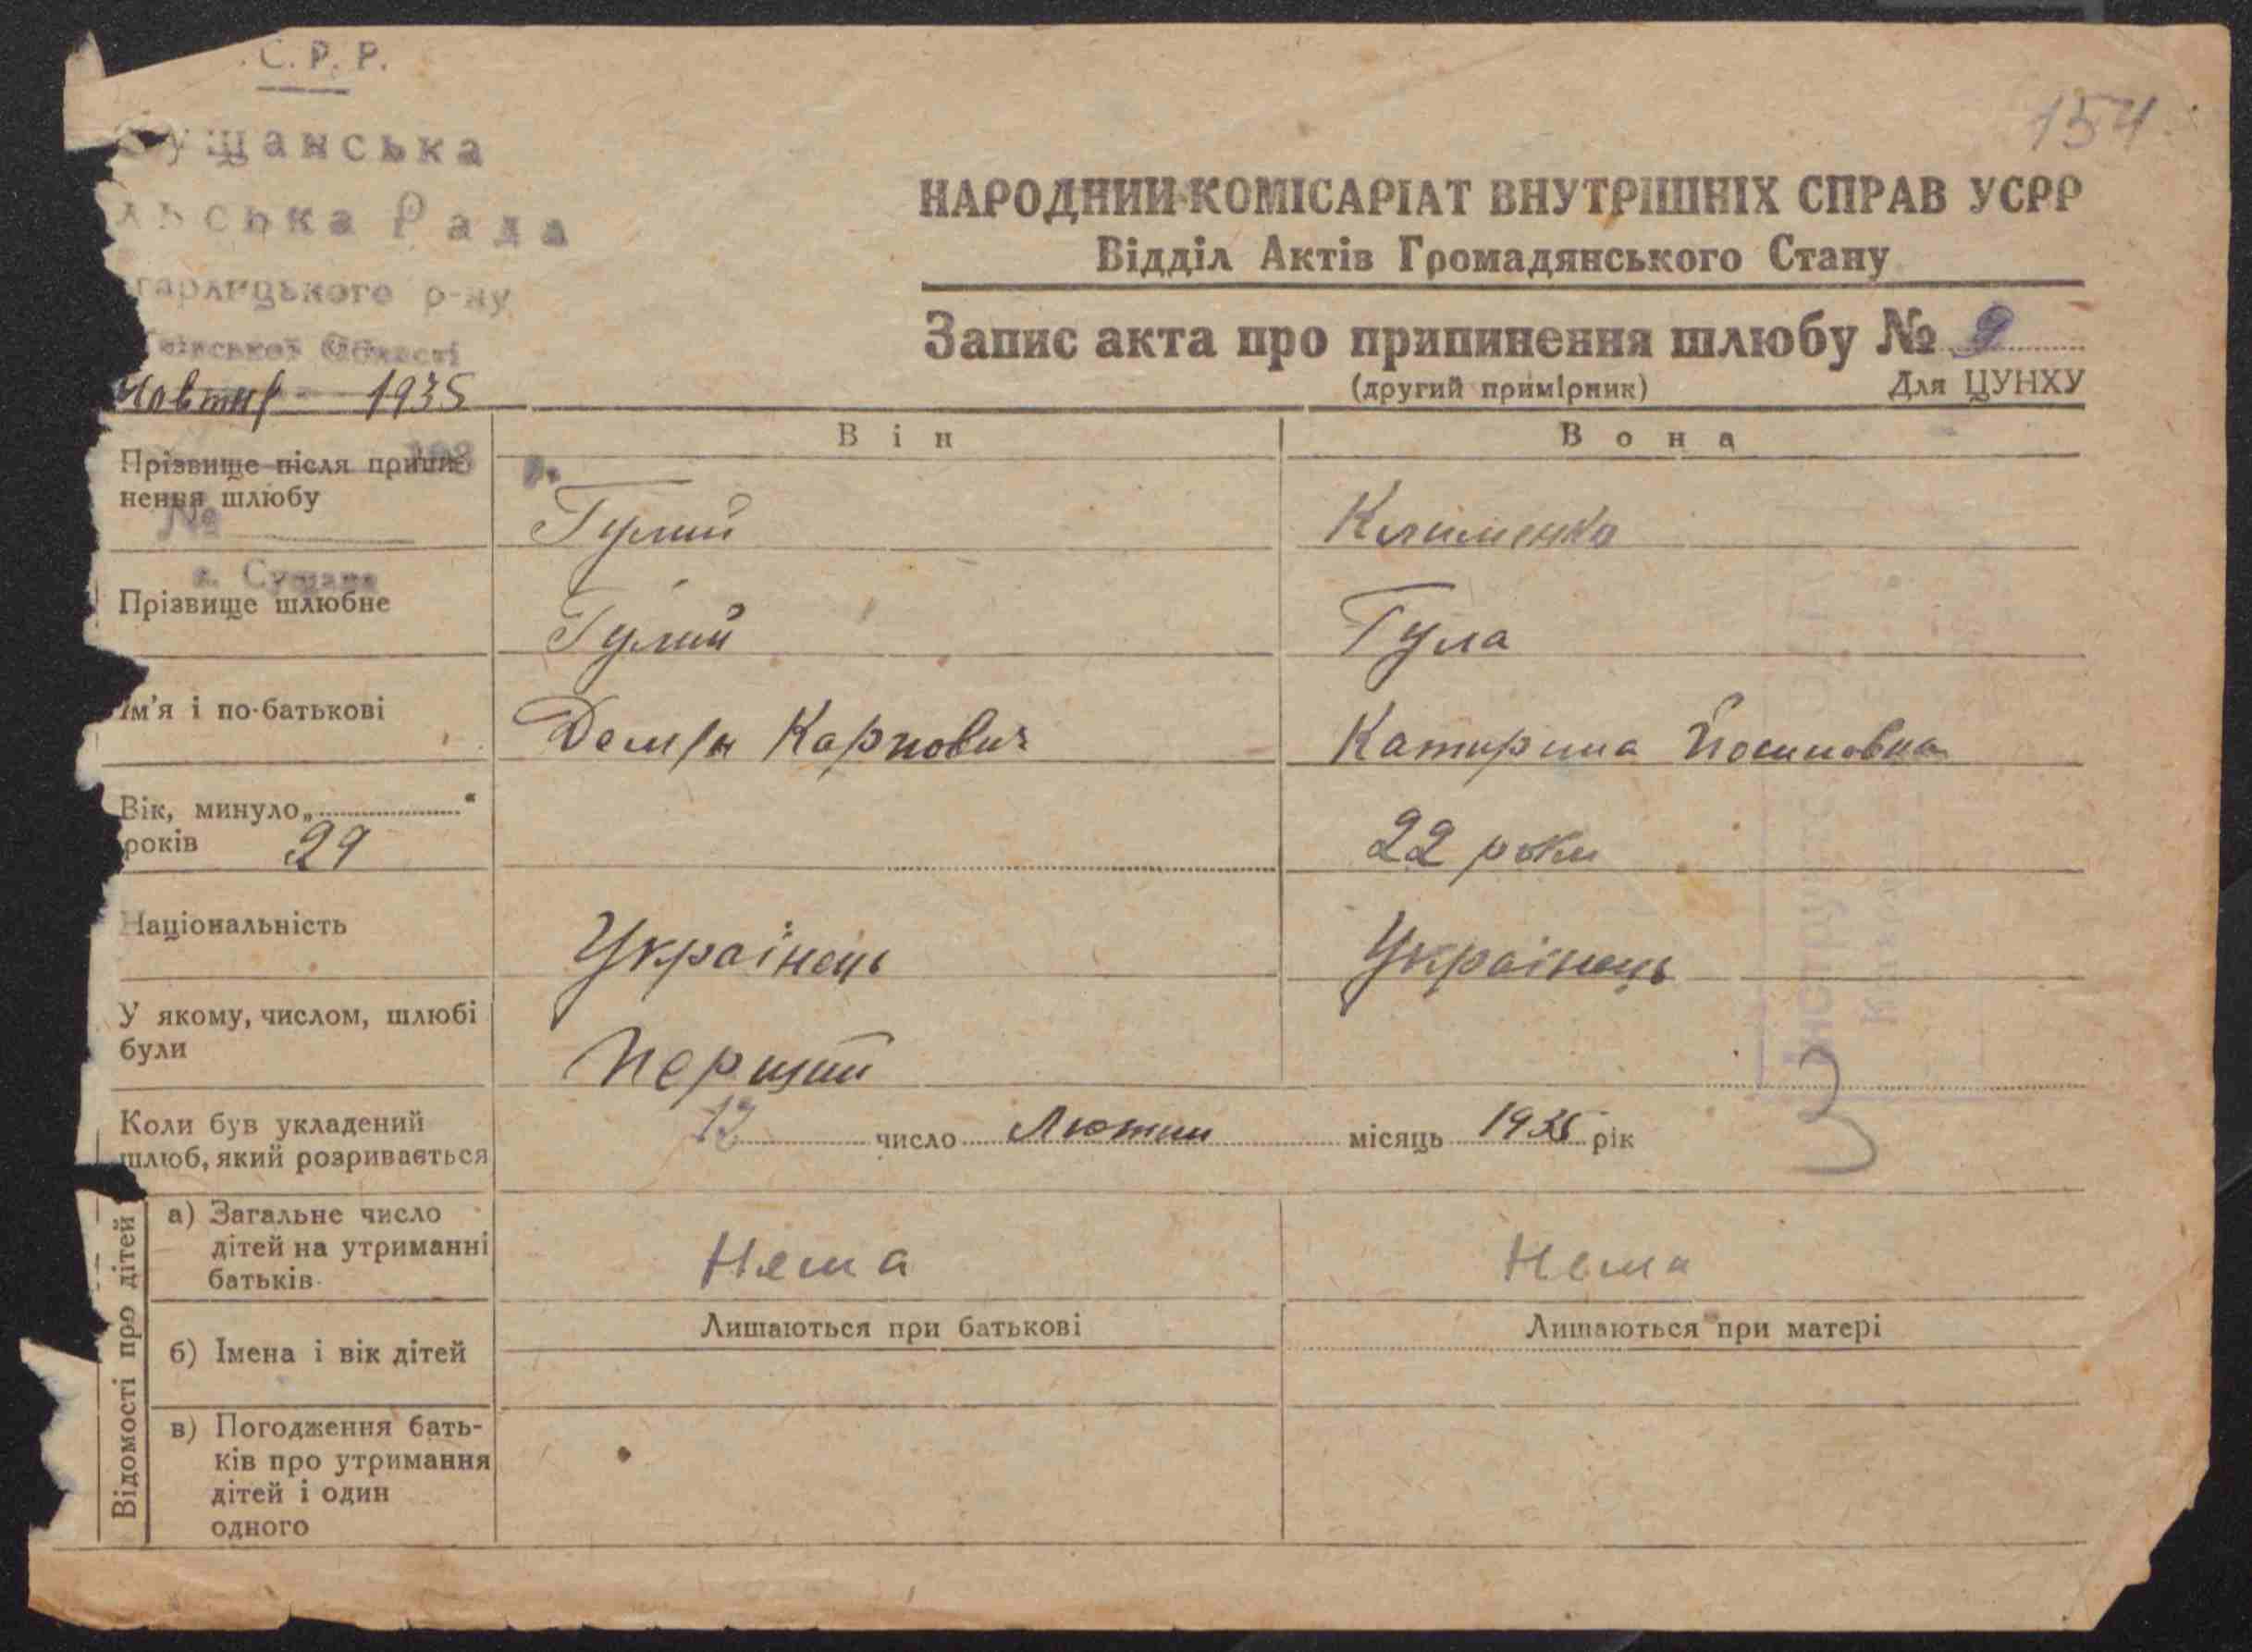 .С.Р.Р.
154
Сущанська
льська Рада
гарлицького р-ну
Київської Області
Жовтня 1935
НАРОДНИЙ КОМІСАРІАТ ВНУТРІШНІХ СПРАВ УСРР
Відділ Актів Громадянського Стану
Запис акта про припинення шлюбу № 9
(другий примірник) Для ЦУНХУ
Він Вона
Прізвище після припи-
нення шлюбу Гулий Кліменко
№
с. Сущана
Прізвище шлюбне Гулий Гула
Ім'я і по-батькові Дем'ян Карпович Катирина Йосиповна
Вік, минуло „ “
років 29 22 роки
Національність Українець Українець
У якому, числом, шлюбі
були Перщий
Коли був укладений
шлюб, який розривається 12 число Лютий місяць 1935 рік
З
Відомості про дітей
а) Загальне число
дітей на утриманні
батьків Нема Нема
Лишаються при батькові Лишаються при матері
б) Імена і вік дітей
в) Погодження бать-
ків про утримання
дітей і один
одного